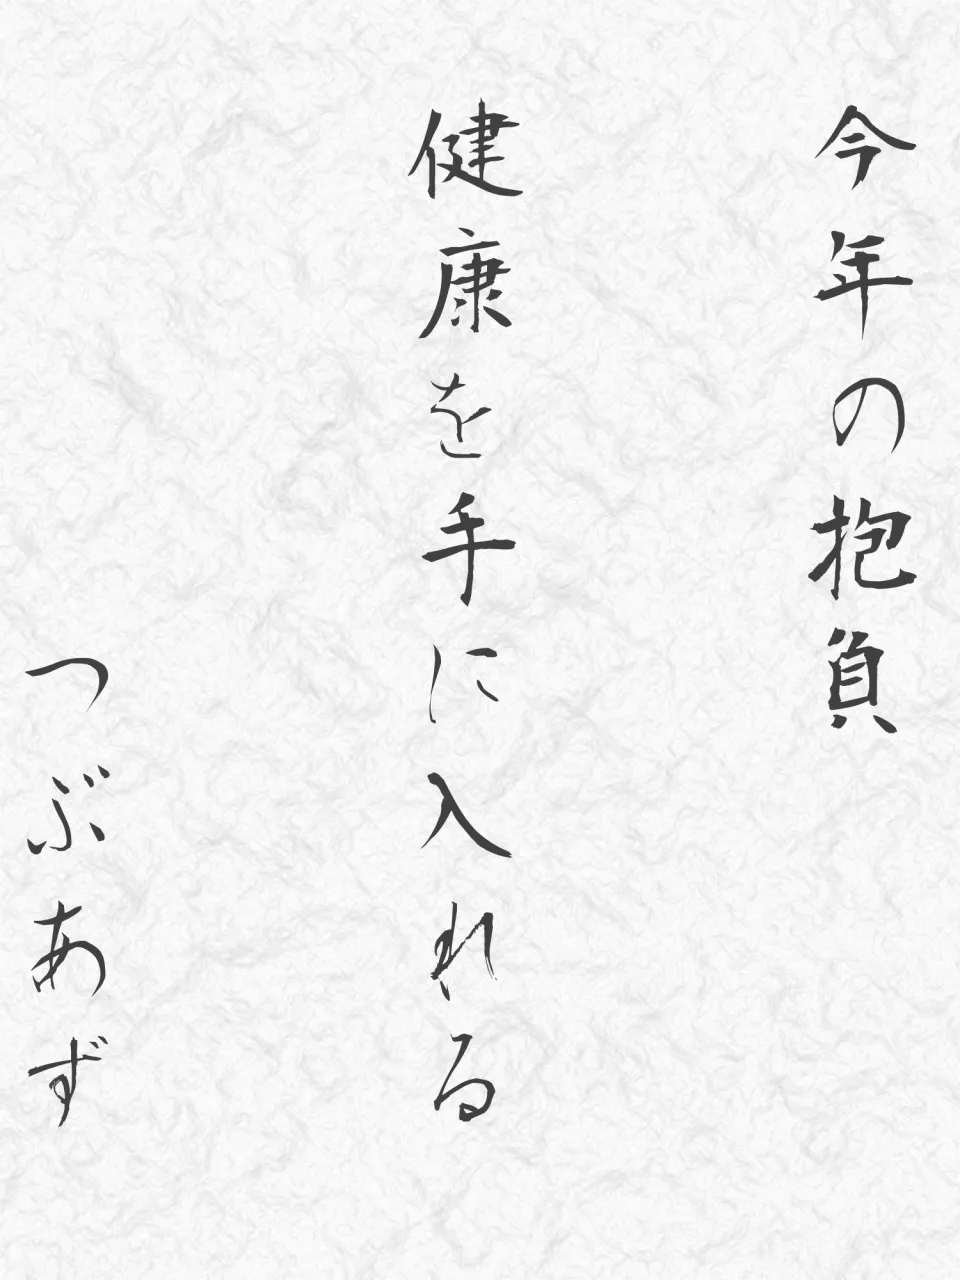 今年の抱負
健康を手に入れる
つぶあず